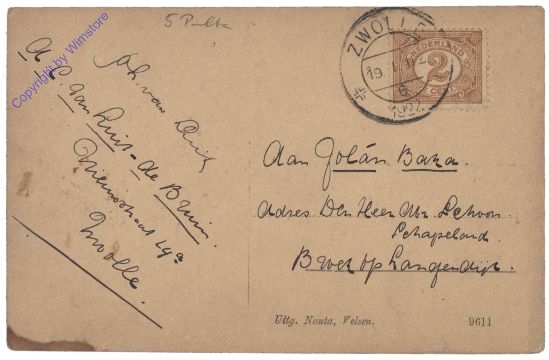 5 Pulta
Copyright by Wimstore
Joh van Ruit
d/ C. van Ruit - de Bruin.
Nieuwstraat 49a
Zwolle.
ZWOLLE
19
6
192
NEDERLAND
2
CENT
Aan Jolán Baka.
Adres Den Heer Mr. Schoon.
Schapeland.
Broek op Langendijk.
Uitg. Nauta, Velsen.
9611